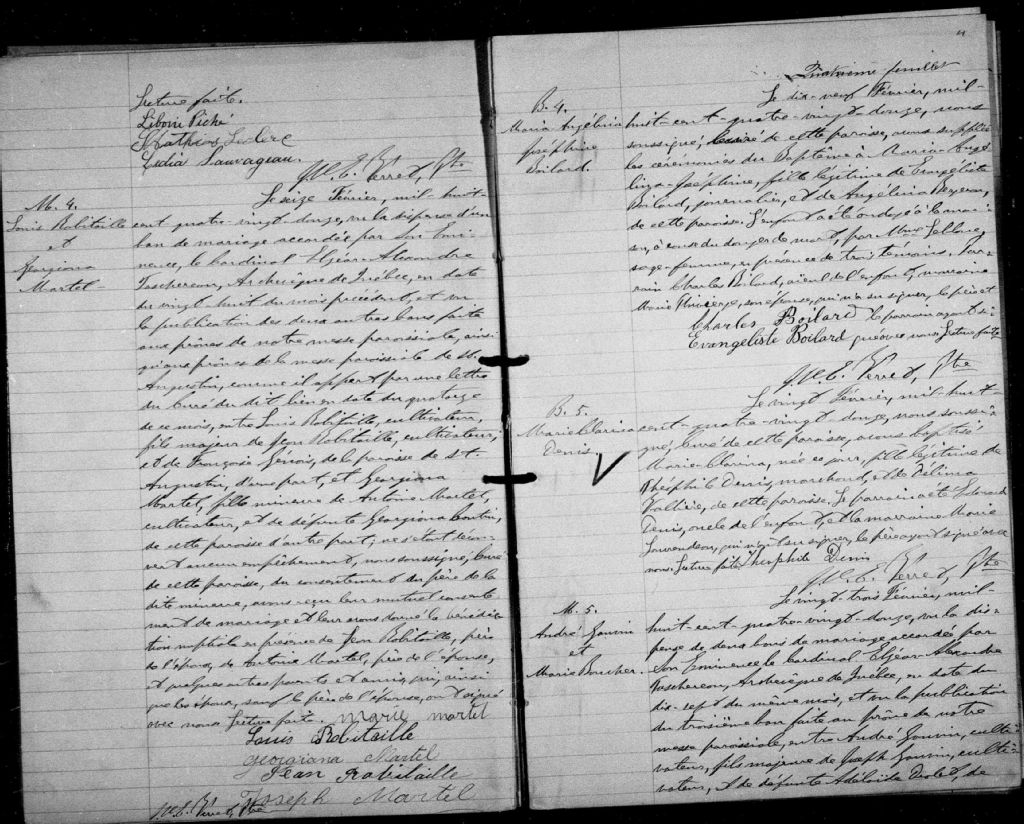 Lecture faite.
Libori Piché
Mathias Leclerc
Exilia Sauvageau.
F. E. Verret, Ptre
M. 4.
Louis Robitaille
et
Georgiana
Martel
Le seize Février, mil-huit-
cent-quatre-vingt-douze, vu la dispense d'un
ban de mariage accordée par Son Emi-
nence, le Cardinal Elzéar-Alexandre
Taschereau, Archevêque de Québec, en date
du vingt-huit du mois précédent, et vu
la publication des deux autres bans faite
aux prônes de notre messe paroissiale, ainsi
qu'aux prônes de la messe paroissiale de St-
Augustin, comme il appert par une lettre
du Curé du dit lieu en date du quatorze
de ce mois, entre Louis Robitaille, cultivateur,
fils majeur de Jean Robitaille, cultivateur,
et de Françoise Génois, de la paroisse de St-
Augustin, d'une part, et Georgiana
Martel, fille mineure de Antoine Martel,
cultivateur, et de défunte Georgiana Cantin,
de cette paroisse d'autre part; ne s'étant décou-
vert aucun empêchement, nous soussigné, Curé
de cette paroisse, du consentement du père de la
dite mineure, avons reçu leur mutuel consente-
ment de mariage et leur avons donné la bénédic-
tion nuptiale en présence de Jean Robitaille, père
de l'époux, de Antoine Martel, père de l'épouse,
et quelques autres parents et amis, qui, ainsi
que les époux, sauf le père de l'épouse, ont signé
avec nous. Lecture faite. marie martel
Louis Robitaille
georgiana Martel
Jean Robitaille
Joseph Martel
Verret, Ptre
Quatrième feuillet
B. 4.
Maria-Angélina
Joséphine
Boilard.
Le dix-neuf Février, mil-
huit-cent-quatre-vingt-douze, nous
soussigné, curé de cette paroisse, avons suppléé
les cérémonies du Baptême à Maria-Angé-
lina-Joséphine, fille légitime de Evangéliste
Boilard, journalier, et de Angélina Vézina,
de cette paroisse. L'enfant a été ondoyé à la mai-
son, à cause du danger de mort, par Mme Leblanc,
sage-femme, en présence de trois témoins. Par-
rain Charles Boilard, aïeul de l'enfant, marraine
Marie son épouse, qui n'a su signer, le père et
Charles Boilard le parrain ayant si-
Evangeliste Boilard gné avec nous. Lecture faite
F. E. Verret, Ptre
B. 5.
Marie Clarina
Denis.
Le vingt Février, mil-huit-
cent-quatre-vingt-douze, nous soussi-
gné, Curé de cette paroisse, avons baptisé
Marie-Clarina, née ce jour, fille légitime de
Théophile Denis, marchand, et de Délima
Vallière, de cette paroisse. Le parrain a été Edouard
Denis, oncle de l'enfant, et la marraine Marie
qui n'ayant su signer, le père ayant signé avec
nous. Lecture faite. Theophile Denis
F. E. Verret, Ptre
M. 5.
André Jauvin
et
Marie Boucher.
Le vingt-trois Février, mil-
huit-cent-quatre-vingt-douze, vu la dis-
pense de deux bans de mariage accordée par
Son Eminence le Cardinal Elzéar-Alexandre
Taschereau, Archevêque de Québec, en date du
dix-sept du même mois, et vu la publication
du troisième ban faite au prône de notre
messe paroissiale, entre André Jauvin, culti-
vateur, fils majeur de Joseph Jauvin, culti-
vateur, et de défunte Adélaïde de